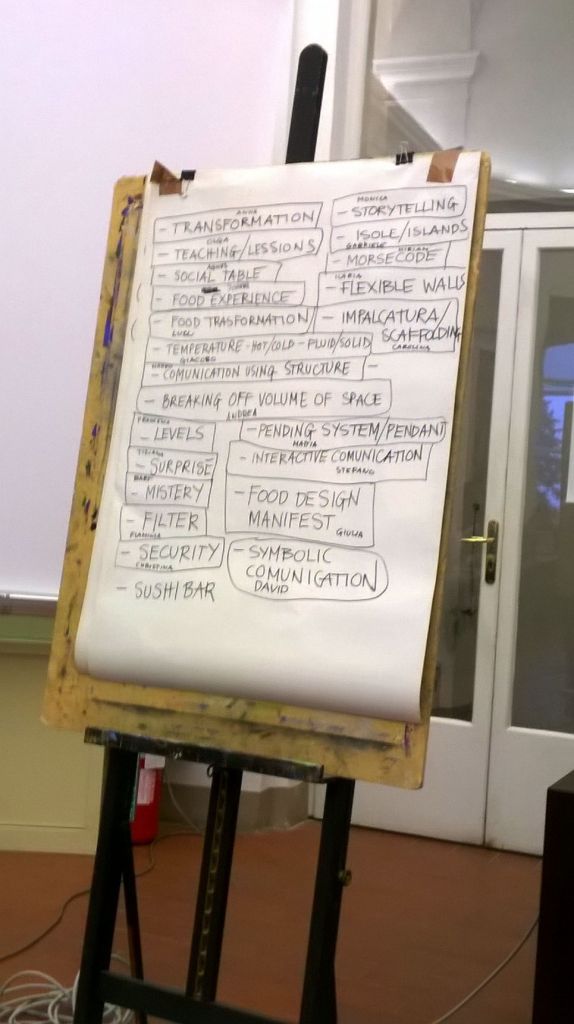 ANNA
- TRANSFORMATION
OLGA
- TEACHING/LESSIONS
AGNES
- SOCIAL TABLE
- FOOD EXPERIENCE
- FOOD TRASFORMATION
LUCI
- TEMPERATURE - HOT/COLD - FLUID/SOLID
GIACOMO
- COMUNICATION USING STRUCTURE -
- BREAKING OFF VOLUME OF SPACE
ANDREA
FRANCESCA
- LEVELS
TIZIANA
- SURPRISE
- MISTERY
- FILTER
FLAMINIA
- SECURITY
CHRISTINA
- SUSHI BAR
MONICA
- STORYTELLING
- ISOLE/ISLANDS
GABRIELE MIRIAM
- MORSECODE
ILARIA
- FLEXIBLE WALLS
- IMPALCATURA/
SCAFFOLDING
CAROLINA
- PENDING SYSTEM/PENDANT
MARIA
- INTERACTIVE COMUNICATION
STEFANO
- FOOD DESIGN
MANIFEST
GIULIA
- SYMBOLIC
COMUNIGATION
DAVID